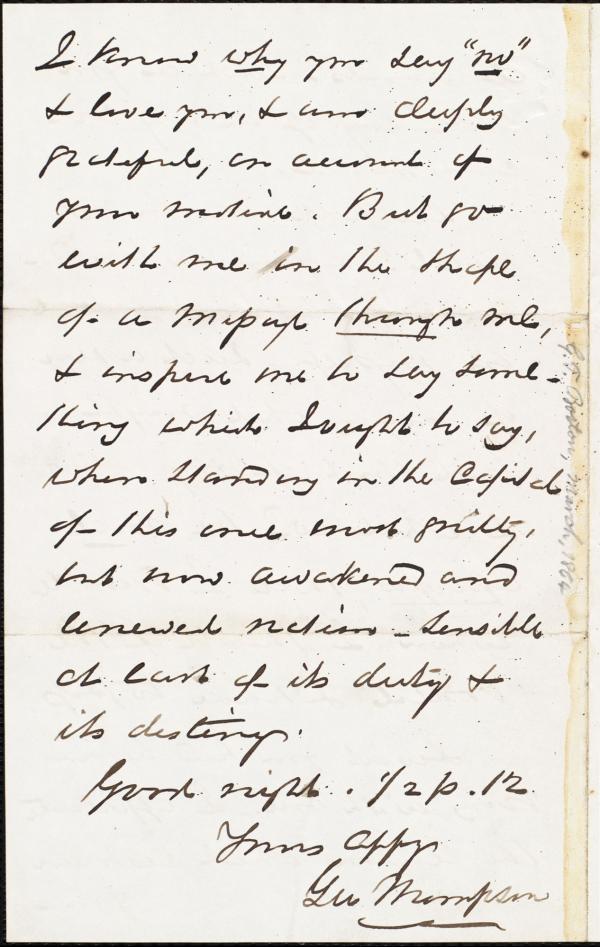 I know why you say "no"
& love you, & am deeply
grateful, on account of
your motive. But go
with me in the shape
of a message through me,
& inspire me to say some-
thing which I ought to say,
when standing in the Capitol
of this once most guilty,
but now awakened and
renewed nation - sensible
at last of its duty &
its destiny.
Good night. 1/2 p. 12
Yours affy.
Geo Thompson
G.T. Boston, March, 1864